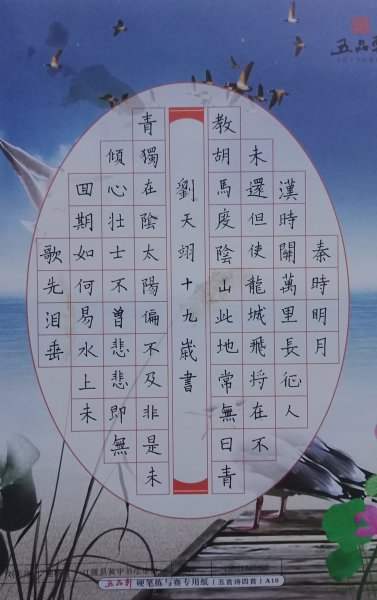 五品
秦時明月
漢時關萬里長征人
未還但使龍城飛将在不
教胡馬度陰山此地常無日青
劉天翊十九歲書
青獨在陰太陽偏不及非是未
傾心壯士不曾悲悲即無
回期如何易水上未
歌先泪垂
五品軒 硬笔练与赛专用纸（五言诗四首）A10